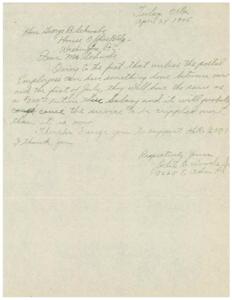 Tulsa Okla
April 24 1945
Hon. George B. Schwabe
House
Washington D.C.
Dear Mr. Schwabe
Owing to the fact that unless the postal
Employees can have something done between now
and the first of July, they will have the same as
a cut in Salary and it will probably
cause the service to be crippled more
than it is now
Therefore I urge you to support H.R. 2071
I thank you
Respectfully Yours